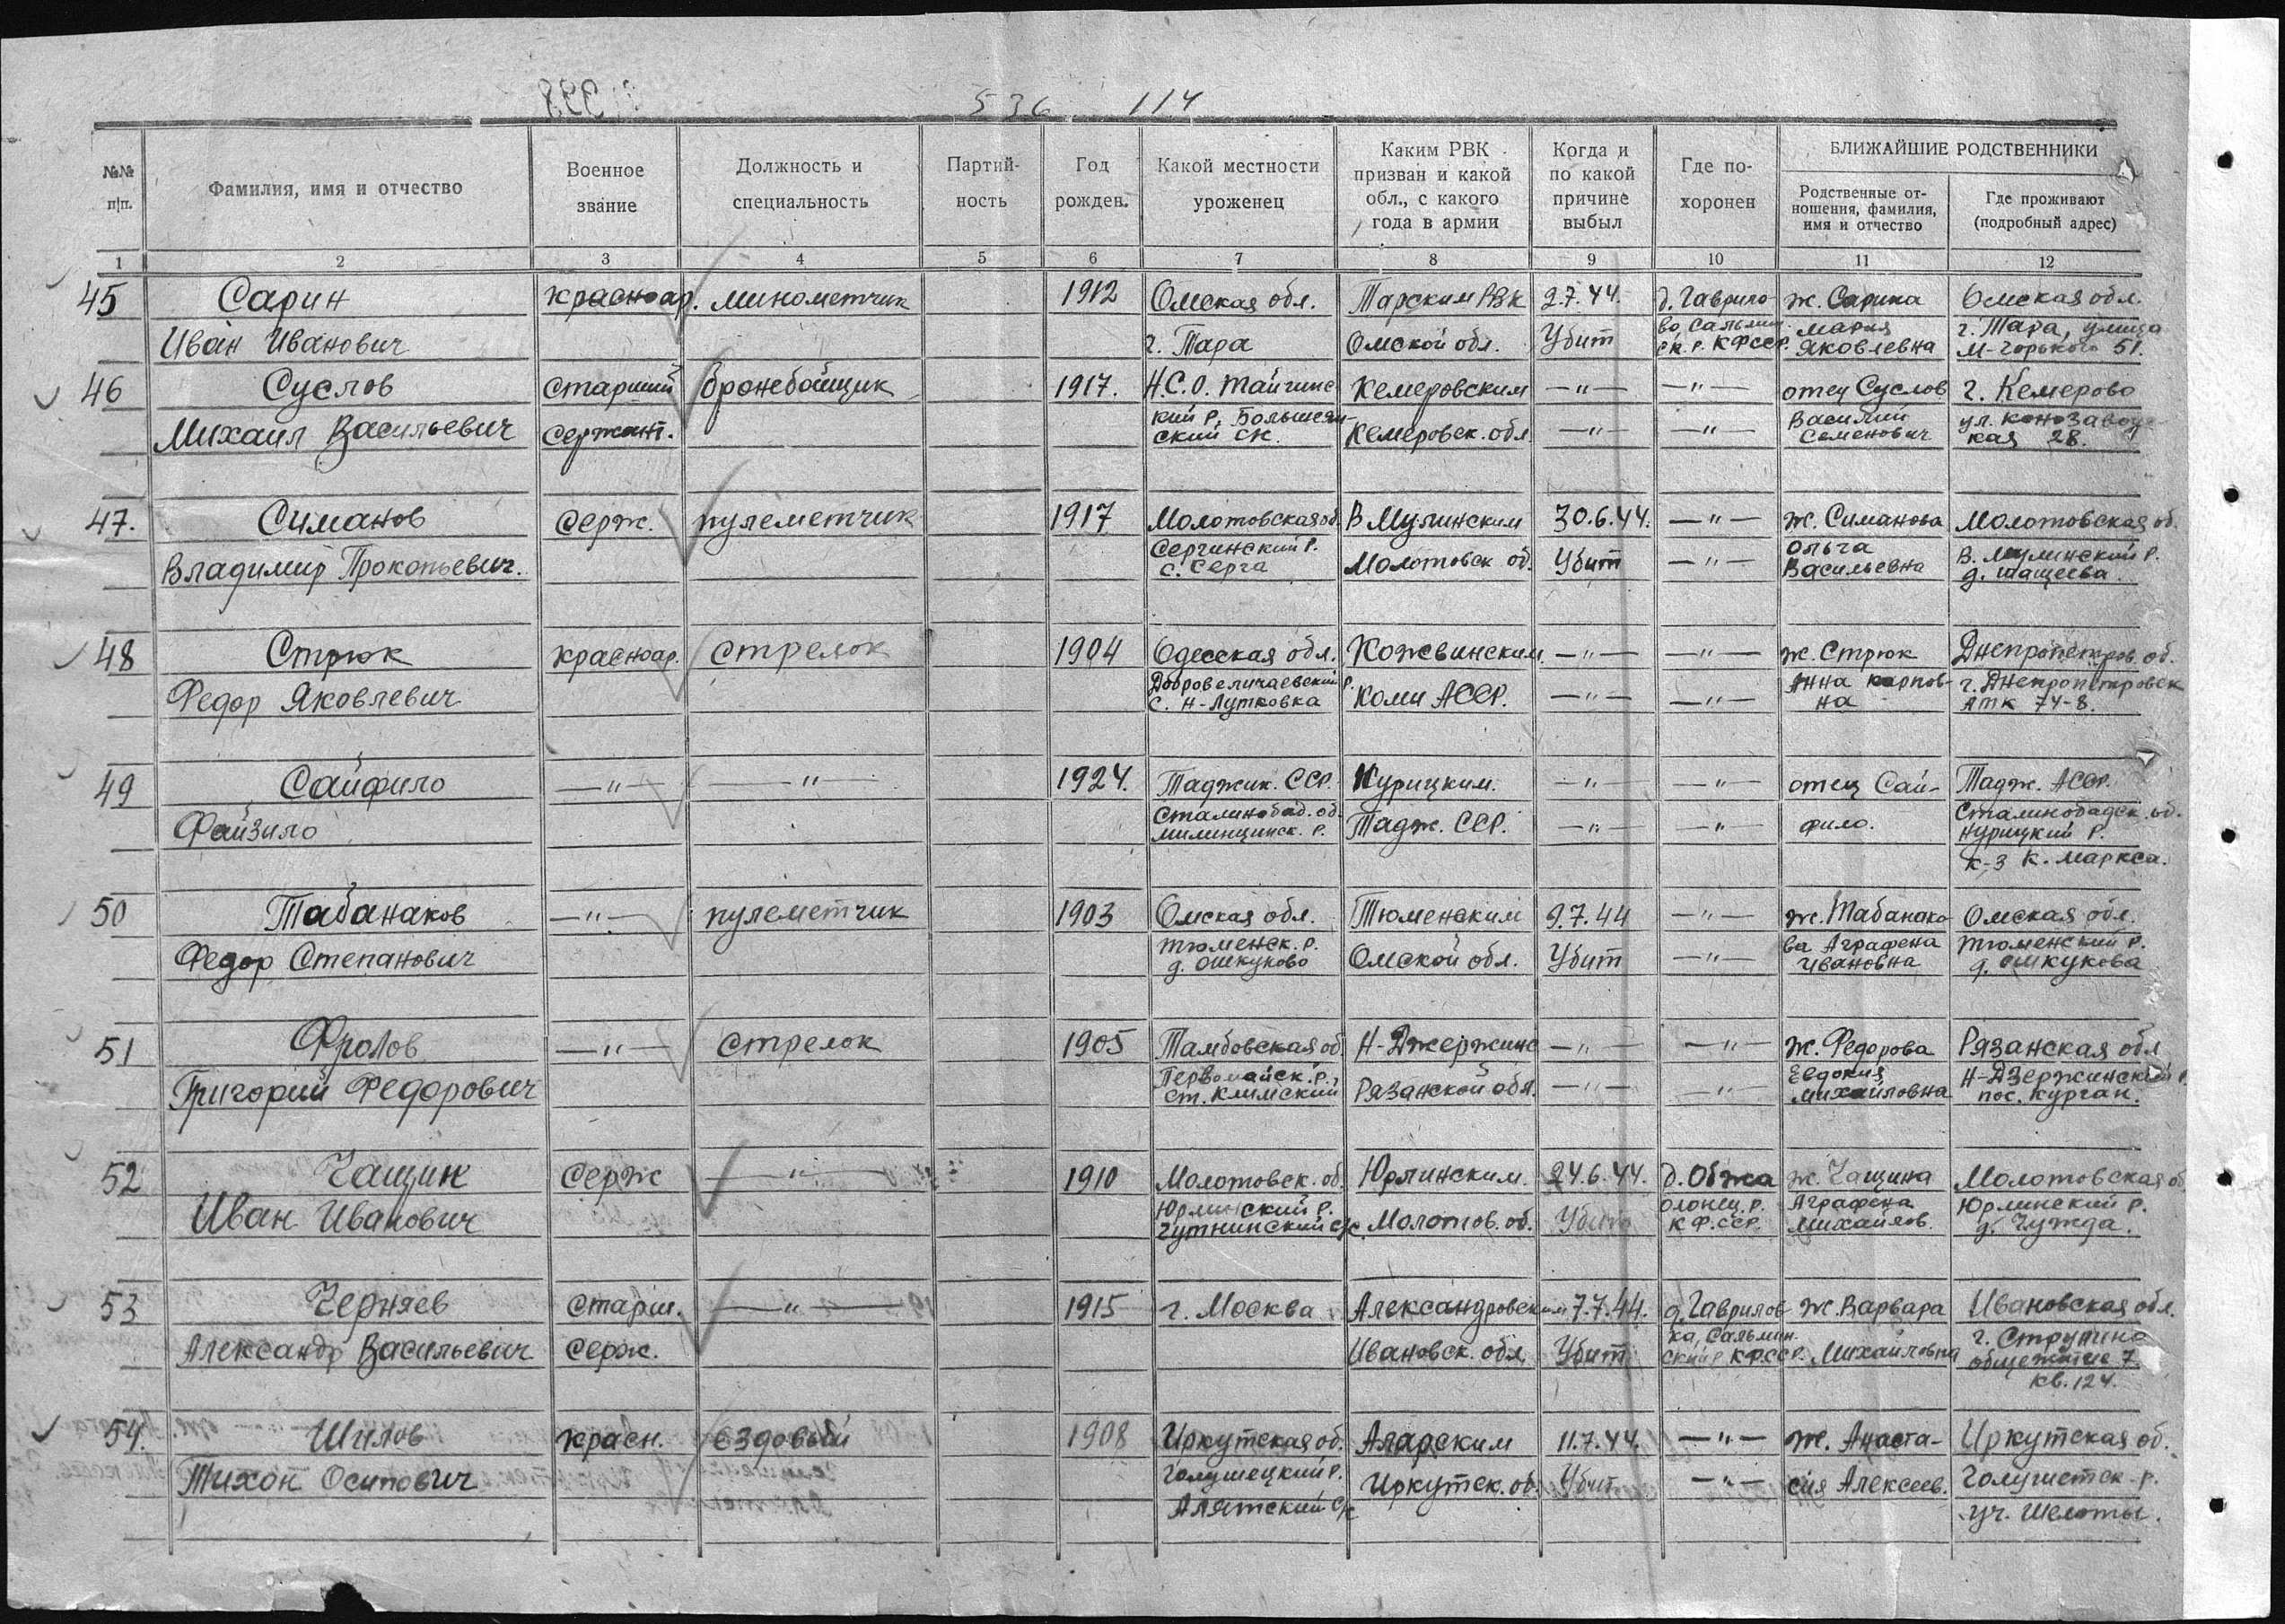 536 114
№№ п/п.
Фамилия, имя и отчество
Военное звание
Должность и специальность
Партий-ность
Год рожден.
Какой местности уроженец
Каким РВК призван и какой обл., с какого года в армии
Когда и по какой причине выбыл
Где по-хоронен
БЛИЖАЙШИЕ РОДСТВЕННИКИ
Родственные от-ношения, фамилия, имя и отчество
Где проживают (подробный адрес)
1 2 3 4 5 6 7 8 9 10 11 12
45 Сарин красноар. минометчик 1912 Омская обл. Тарским РВК 2.7.44. д. Гаврило- ж. Сарина Омская обл.
Иван Иванович г. Тара Омской обл. Убит во, Сальмин. ск. р. КФССР. Мария Яковлевна г. Тара, улица М-Горького 51.
46 Суслов Старший бронебойщик 1917. Н.С.О. Тайгинс Кемеровским —"— —"— отец Суслов г. Кемерово
Михаил Васильевич Сержант. кий р. ский с/с. Кемеровск. обл. —"— —"— Василий Семенович ул. Конозаводс- кая 28.
47. Симанов Серж. пулеметчик 1917 Молотовская об. В Мулинским 30.6.44. —"— ж. Симанова Молотовская об.
Владимир Прокопьевич. Сергинский р. с. Серга Молотовск об. Убит —"— Ольга Васильевна В. Мулинский р. д. Тащеева.
48 Стрюк красноар. Стрелок 1904 Одесская обл. Кожвинским —"— —"— ж. Стрюк Днепропетров. об.
Федор Яковлевич Добровеличаевский р. с. Н-Лутковка Коми АССР. —"— —"— Анна Карпов- на г. Днепропетровск АТК 74-8.
49 Сайфило —"— —"— 1924. Таджик. ССР. Нурицким. —"— —"— отец Сай- Тадж. АССР.
Файзило Сталинобад. об. Тадж. ССР. —"— —"— фило. Сталинобадск. об. Нурицкий р.
к-з К. Маркса.
50 Табанаков —"— пулеметчик 1903 Омская обл. Тюменским 9.7.44 —"— ж. Табанако- Омская обл.
Федор Степанович Тюменск. р. д. Ошкуково Омской обл. Убит —"— ва Аграфена Ивановна Тюменский р. д. Ошкукова
51 Фролов —"— Стрелок 1905 Тамбовская об. Н-Джержинс —"— —"— ж. Федорова Рязанская обл
Григорий Федорович Первомайск. р., ст. Климский Рязанской обл. —"— —"— Евдокия Михайловна Н-Дзержинский р. пос. Курган.
52 Чащин Серж —"— 1910 Молотовск. об. Юрлинским. 24.6.44. д. Обжа ж. Чащина Молотовская об
Иван Иванович Юрлинский р. Чутнинский с/с. Молотов. об. Убит Олонец. р. КФ.ССР. Аграфена Михайлов. Юрлинский р. д. Чужда.
53 Черняев Старш. —"— 1915 г. Москва Александровским 7.7.44. д. Гаврилов- ж. Варвара Ивановская обл.
Александр Васильевич Серж. Ивановск. обл. Убит ка, Сальмин- ский р КФССР. Михайловна г. Струнино общежитие 7
кв. 124.
54. Шилов красн. ездовый 1908 Иркутская об. Аларским 11.7.44. —"— ж. Анаста- Иркутская об.
Тихон Осипович Голушецкий р. Иркутск. об. Убит —"— сия Алексеев. Голуметск р.
Алятский с/с уч. Шелоты.